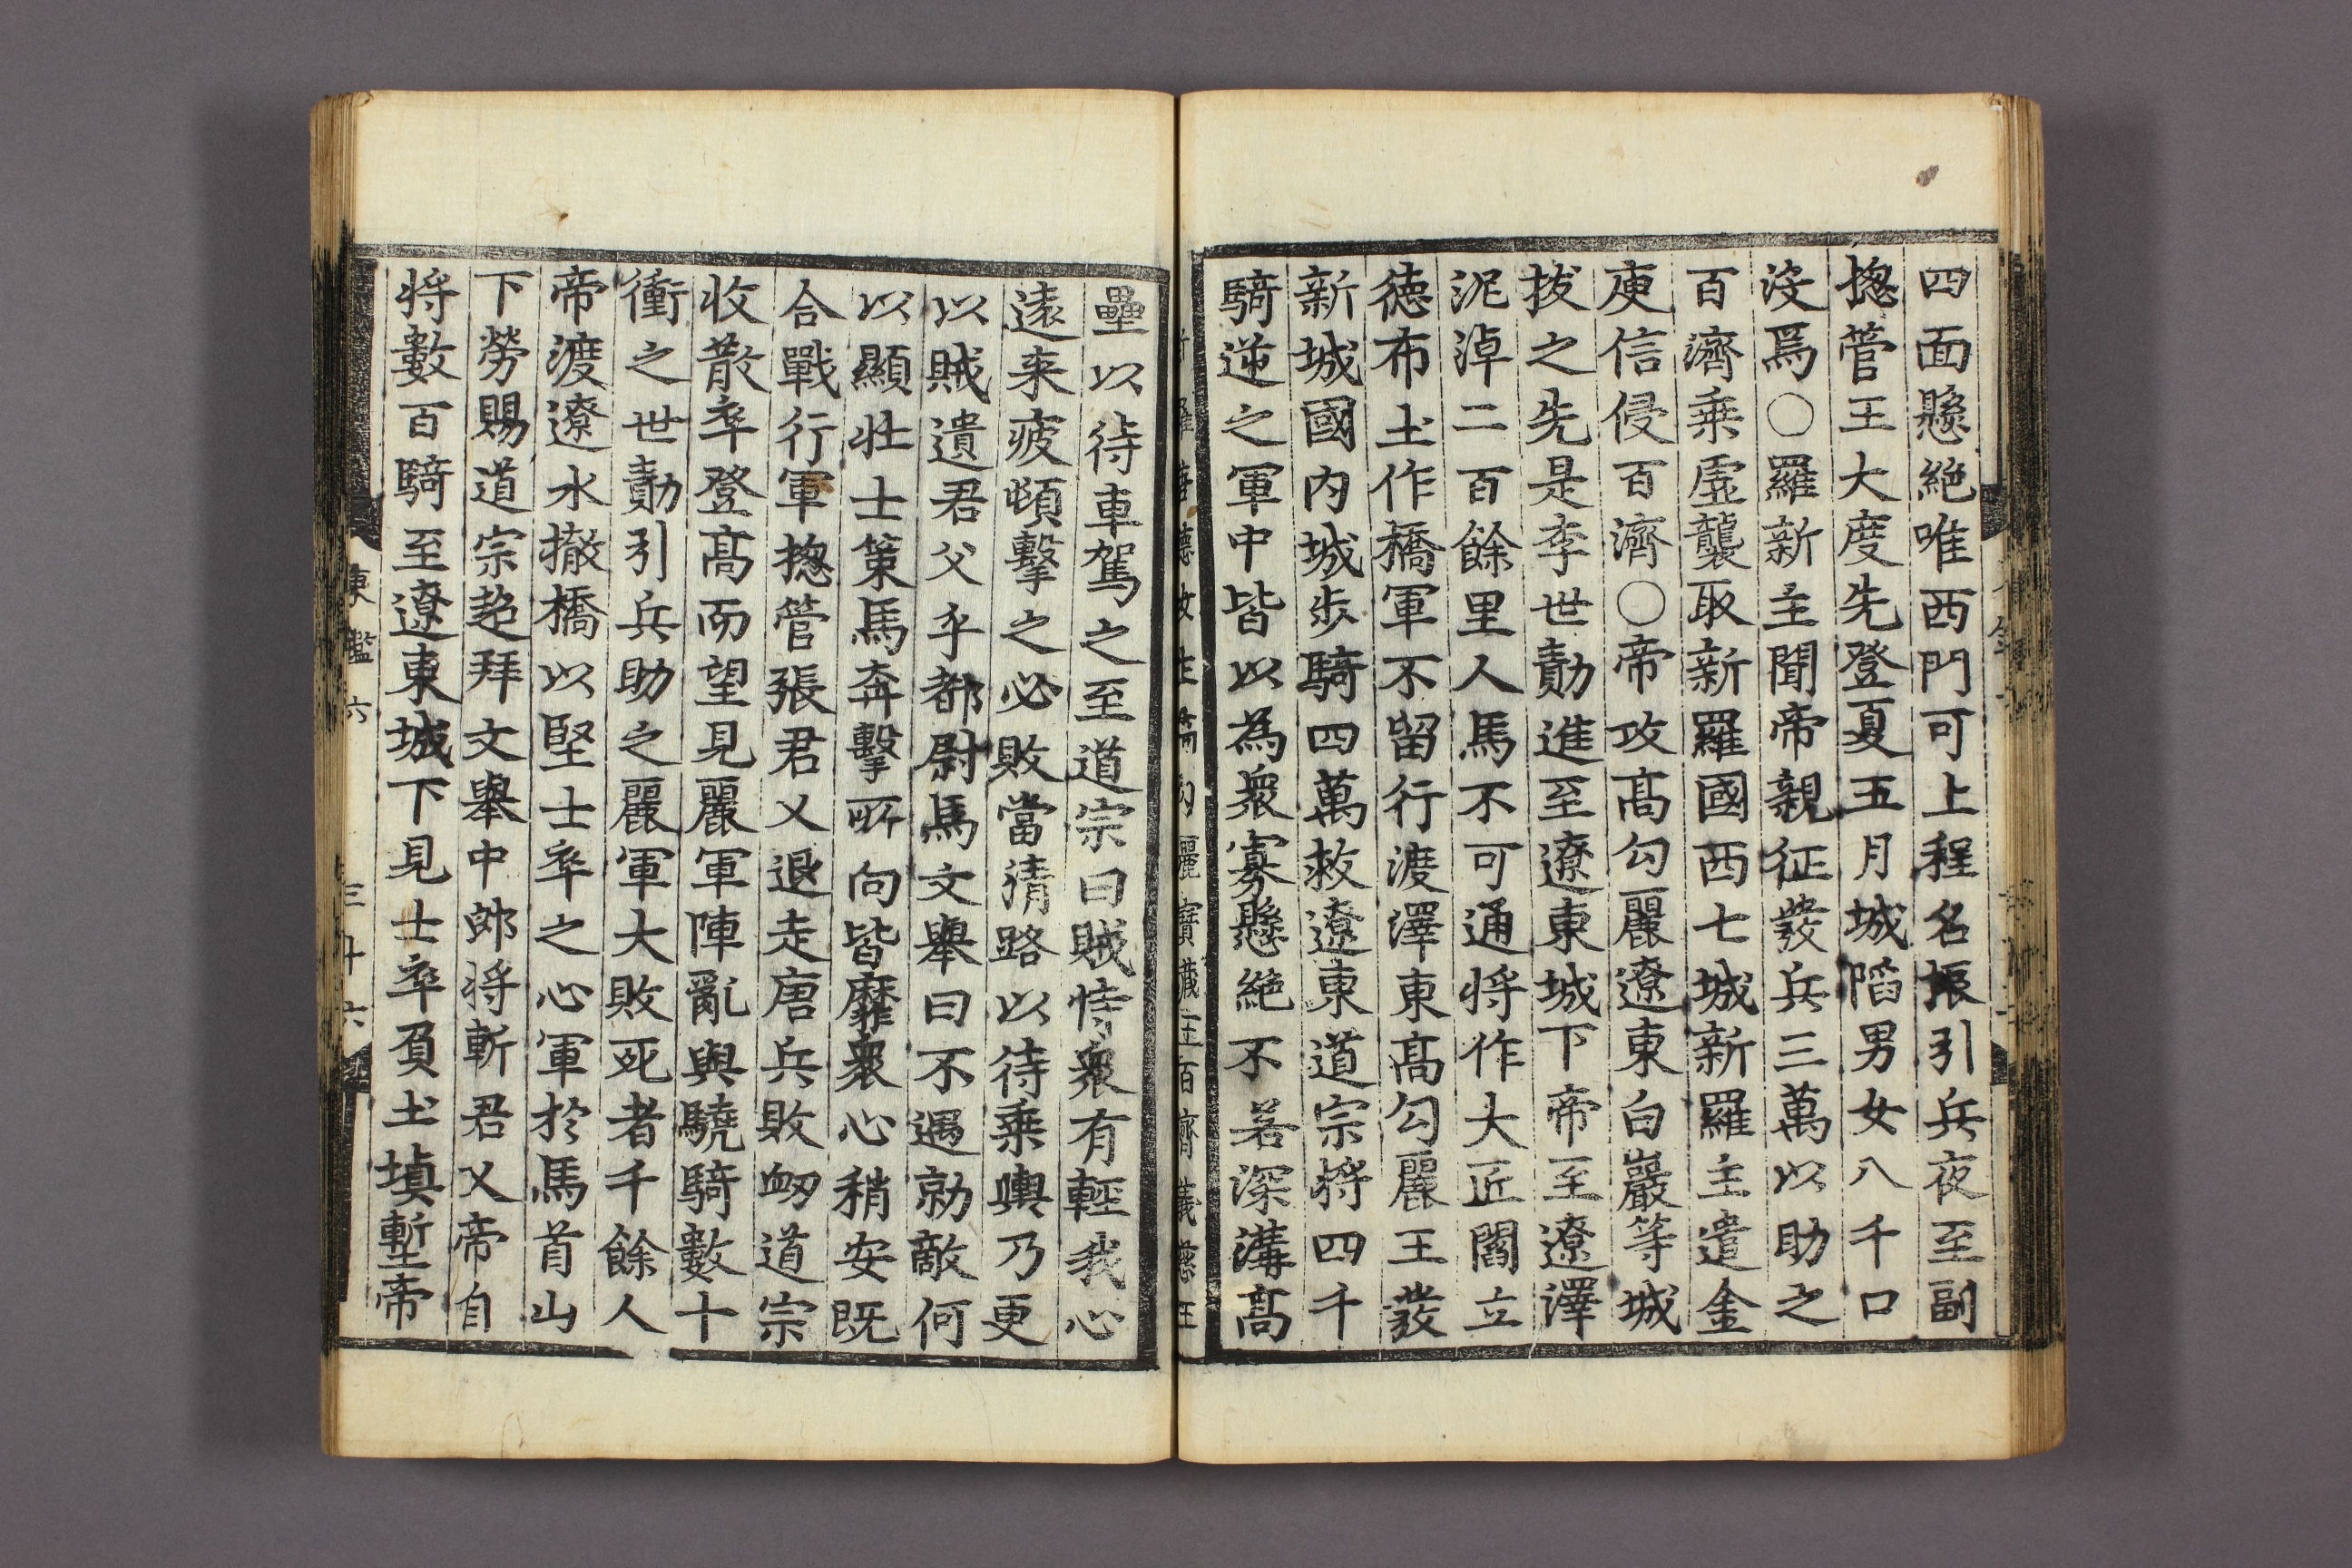 四面懸絶唯西門可上程名振引兵夜至副
摠管王大度先登夏五月城陷男女八千口
沒焉〇羅新主聞帝親征發兵三萬以助之
百濟乗虛襲取新羅國西七城新羅主遣金
庾信侵百濟〇帝攻髙勾麗遼東白巖等城
拔之先是李世勣進至遼東城下帝至遼澤
泥淖二百餘里人馬不可通將作大匠閻立
德布土作橋軍不留行渡澤東髙勾麗王發
新城國內城步騎四萬救遼東道宗將四千
騎逆之軍中皆以為衆寡懸絶不若深溝髙
羅善德女主 髙勾麗寶藏王百濟義慈王
壘以待車駕之至道宗曰賊恃衆有輕我心
遠来疲頓擊之必敗當清路以待乗輿乃更
以賊遺君父乎都尉馬文舉曰不遇勍敵何
以顯壮士策馬奔擊所向皆靡衆心稍安既
合戰行軍摠管張君乂退走唐兵敗衂道宗
收散卒登髙而望見麗軍陣亂與驍騎數十
衝之世勣引兵助之麗軍大敗死者千餘人
帝渡遼水撤橋以堅士卒之心軍於馬首山
下勞賜道宗超拜文舉中郎将斬君乂帝自
将數百騎至遼東城下見士卒負土塡塹帝
東鑑六 三十六